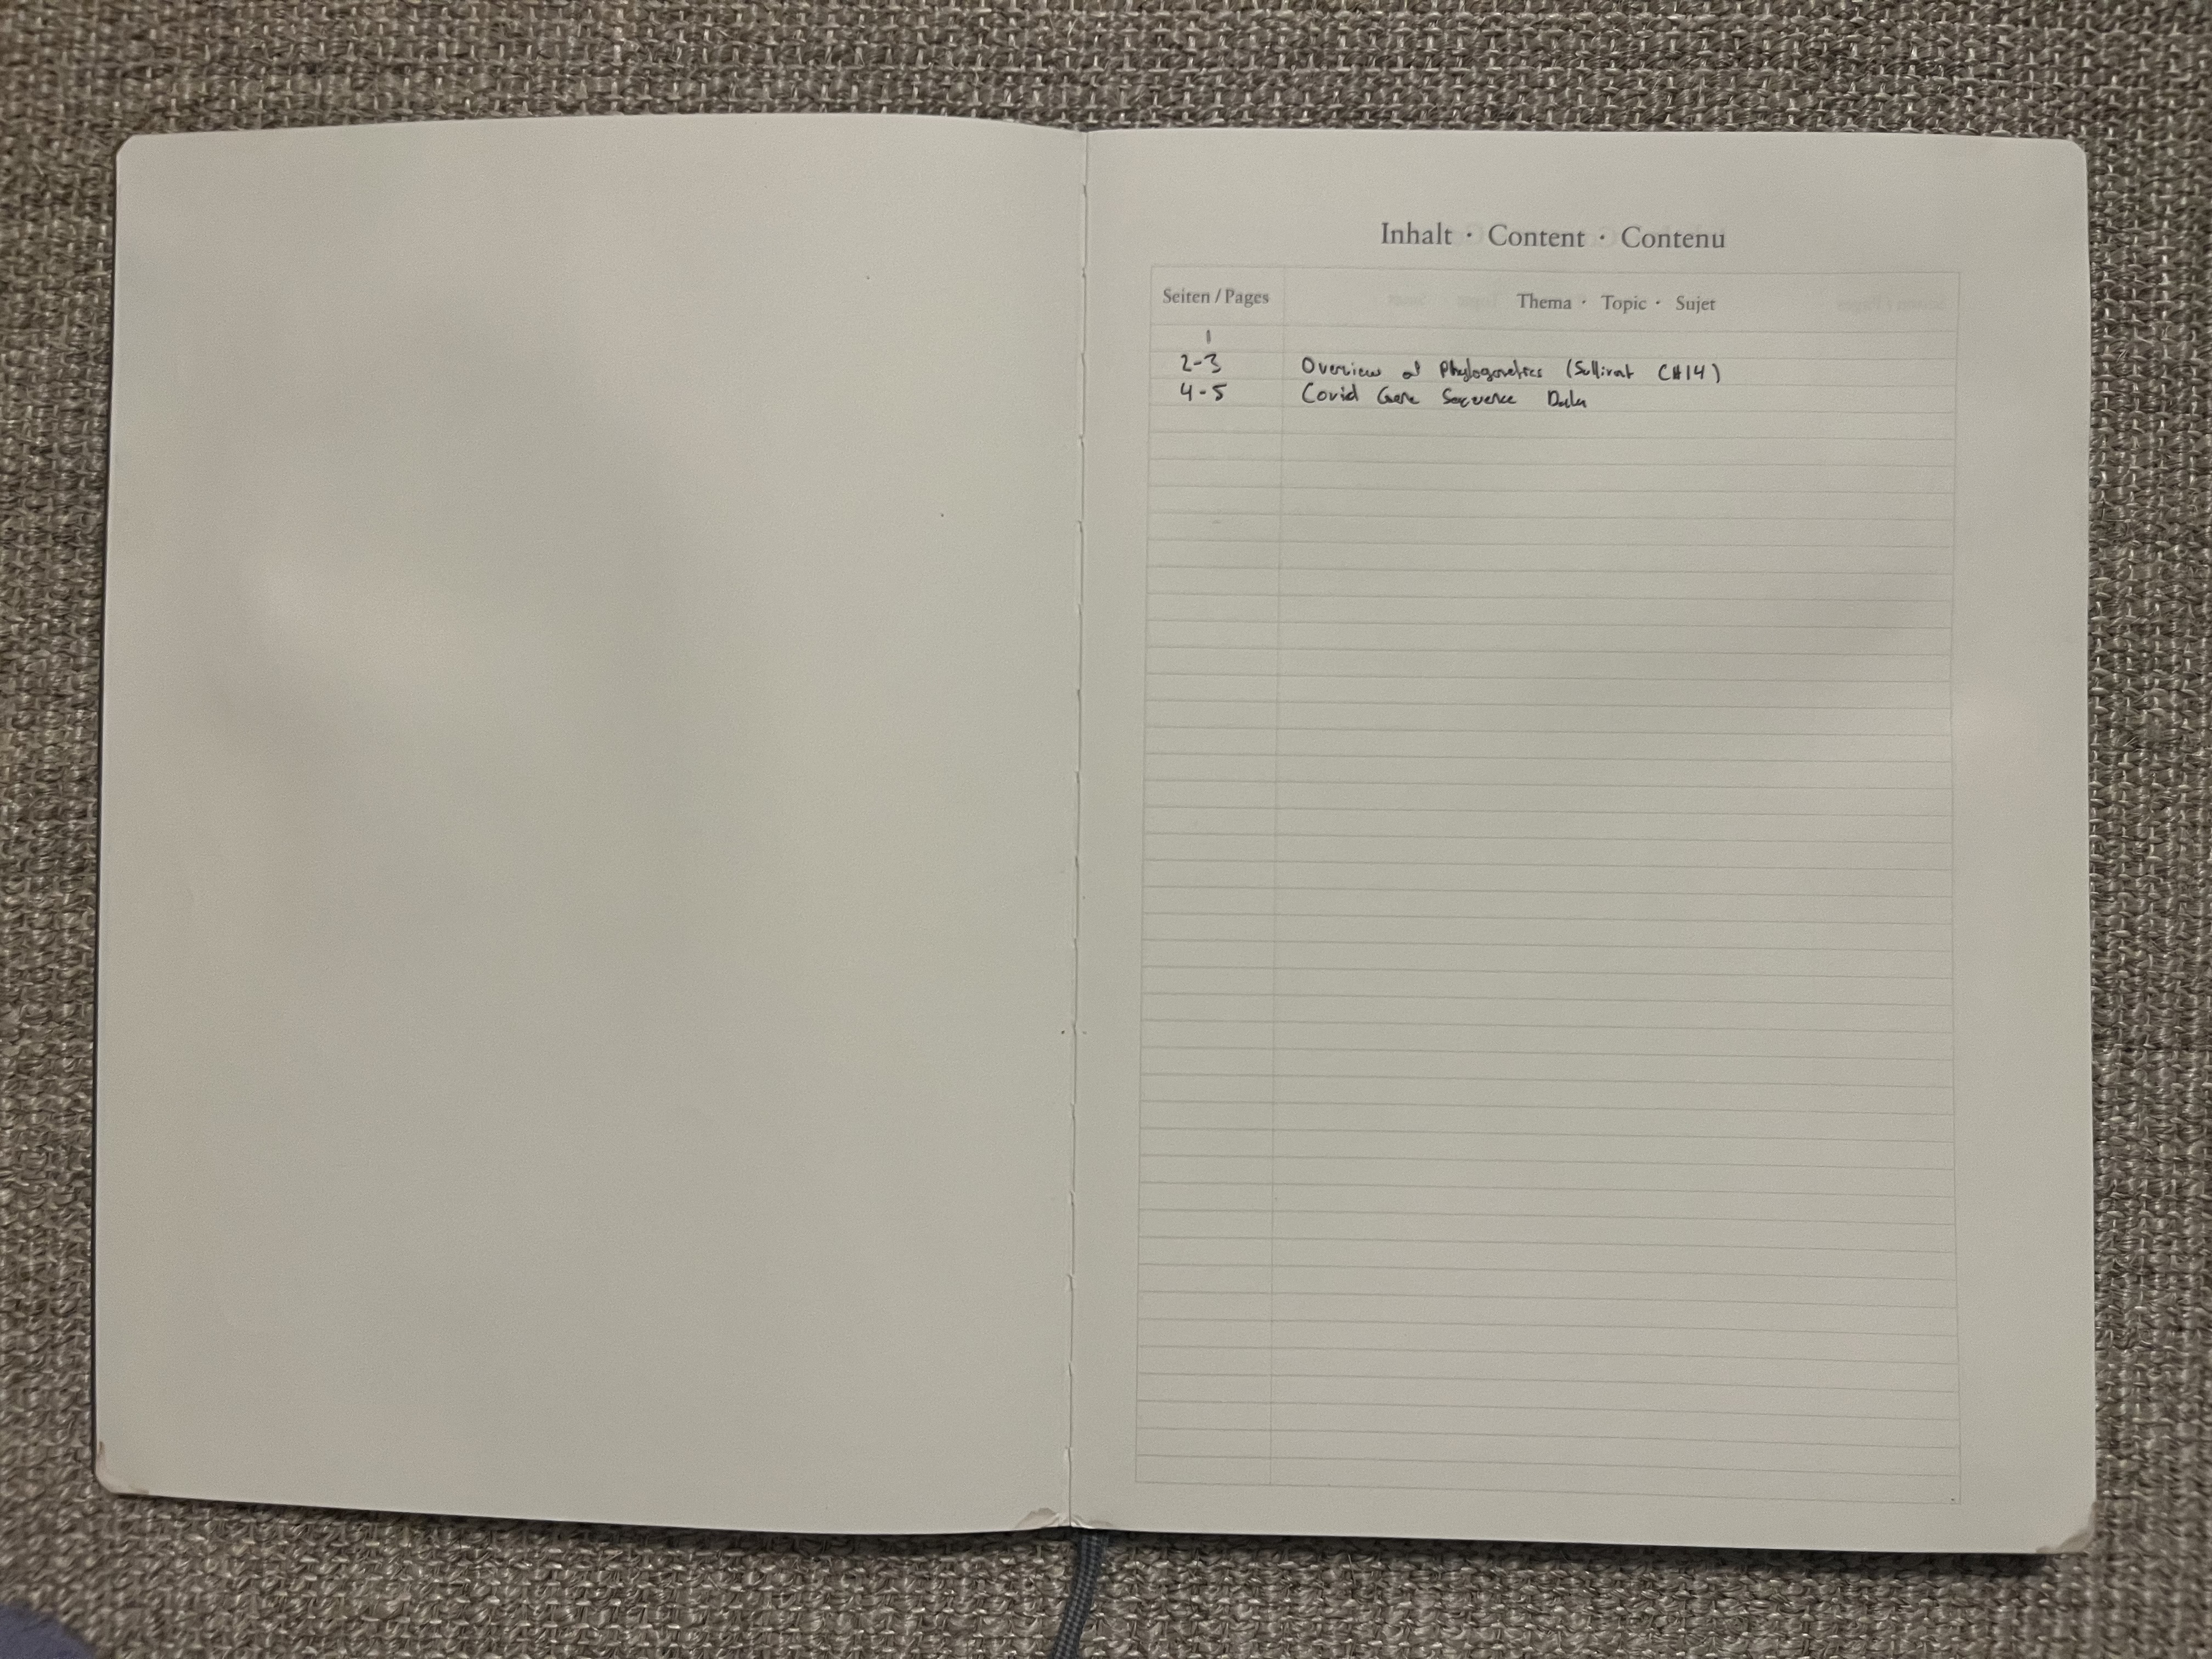 Inhalt · Content · Contenu
Seiten / Pages Thema · Topic · Sujet
2-3 Overview of Phylogenetics (Sullivat CH14)
4-5 Covid Gene Sequence Data